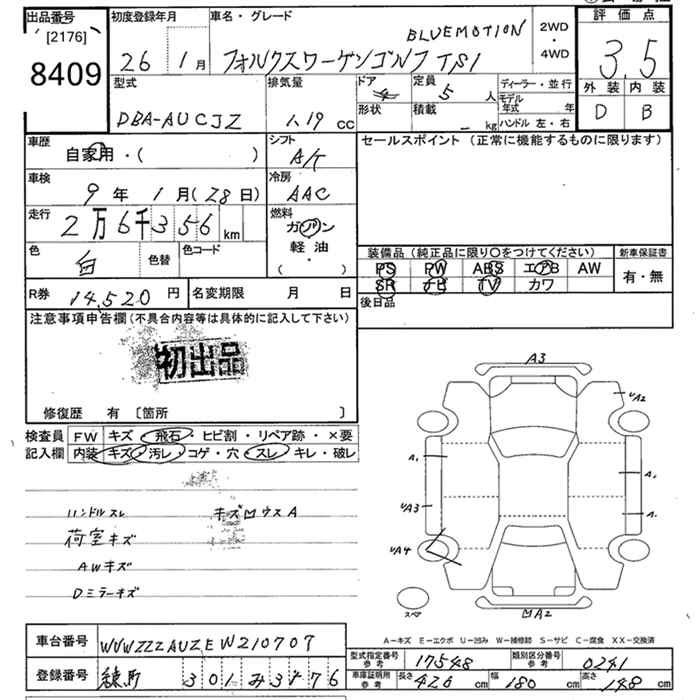 出品番号 初度登録年月 車名・グレード 評価点
[2176] BLUEMOTION 2WD
・
8409 26 1月 フォルクスワーゲンゴルフ TSI 4WD 3.5
型式 排気量 ドア 定員 ディーラー・並行 外装 内装
DBA-AUCJZ 1.19 CC 4 5人 モデル年式 年 D B
形状 積載 kg ハンドル 左・右
車歴 シフト セールスポイント (正常に機能するものに限ります)
自家用・( ) A/T
車検 冷房
9年 1月(28日) AAC
走行 燃料
2万6千356 km ガソリン
色 色替 色コード 軽油
白 ( ・ )
装備品 (純正品に限り○をつけてください) 新車保証書
PS PW ABS エアB AW 有・無
SR ナビ TV カワ
R券 14,520円 名変期限 月 日 後日品
注意事項申告欄 (不具合内容等は具体的に記入して下さい)
初出品
修復歴 有 〔箇所 〕
検査員 FW キズ・飛石・ヒビ割・リペア跡・×要
記入欄 内装 キズ・汚レ・コゲ・穴・スレ・キレ・破レ
ハンドルスレ
荷室キズ
AWキズ
Dミラーキズ
A3
UA2
UA3
UA4
A2
スペア
A-キズ E-エクボ U-凹み W-補修跡 S-サビ C-腐食 XX-交換済
車台番号 WVWZZZAUZEW210707
登録番号 練馬 301 み 3976
型式指定番号 参考 17548 類別区分番号 参考 0241
車庫証明用 参考 長さ 426 cm 幅 180 cm 高さ 148 cm